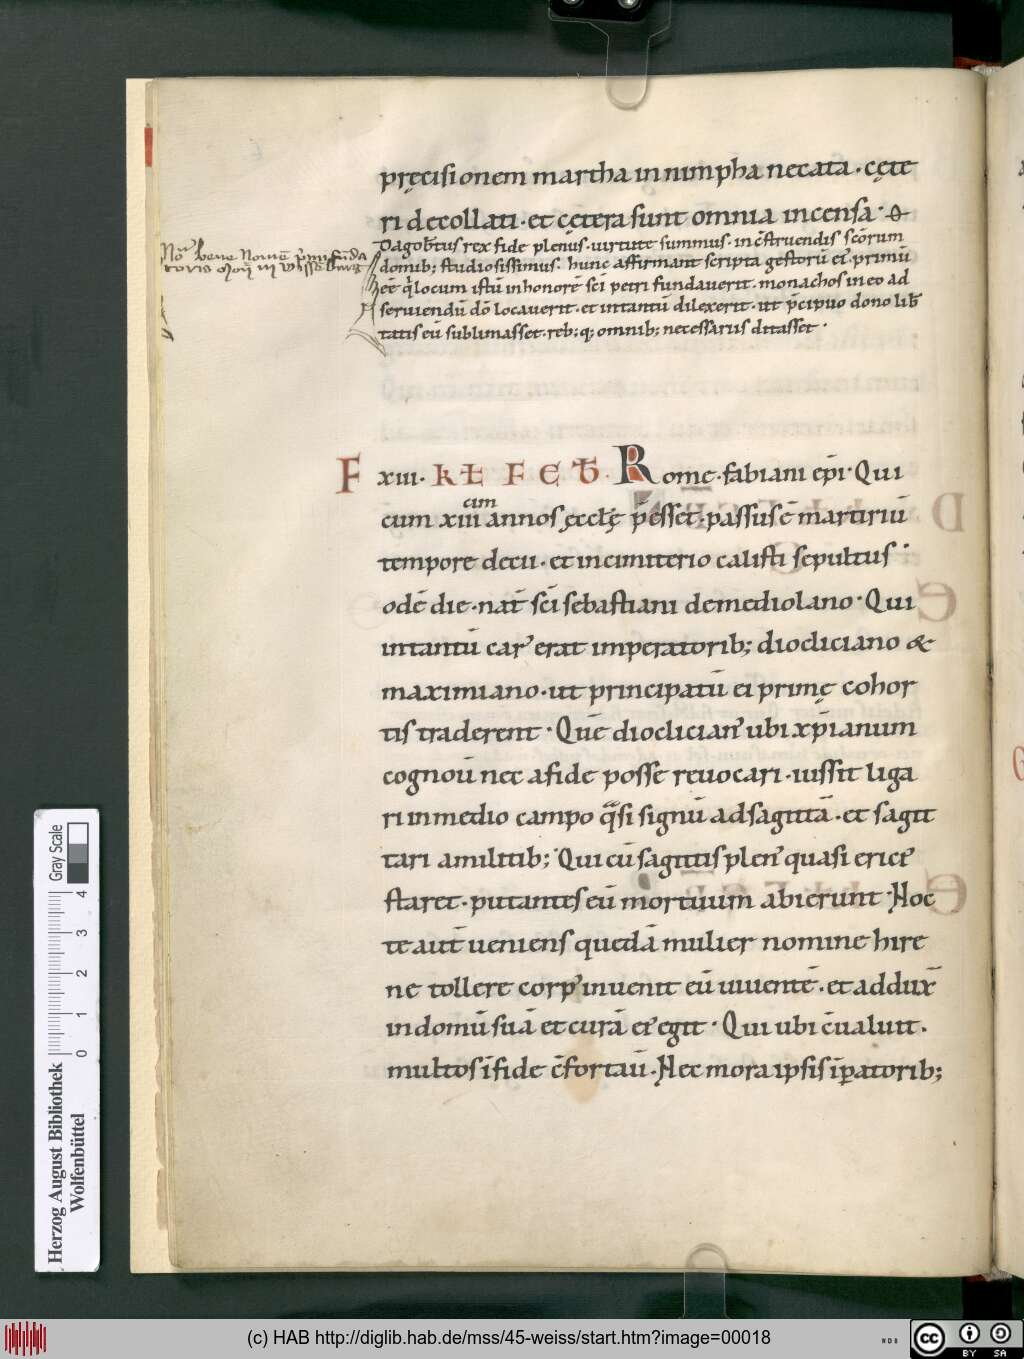 pręcisionem martha in nimpha necata. cęte
ri decollati. et cętera sunt omnia incensa.
Dagob̄tus rex fide plenus. uirtute summus. in c̄struendis sc̄orum
domib; studiosissimus. hunc affirmant scripta gestorū ei᾽. primū
eē q̄ locum istū in honorē sc̄i petri fundauerit. monachos in eo ad
seruiendū dō locauerit. et in tantū dilexerit. ut p̄cipuo dono lib̄
tatis eū sublimasset. reb; q; omnib; necessariis ditasset.
Nō bene Nomē p̄mi fūda
toris
F xiii. kł FEƀ. Rome. fabiani ep̄i. Qui
cum xiii cim annos ęcclę p̄esset. passus ē martiriū
tempore decii. et in cimiterio calisti sepultus.
odē die. nat̄ sc̄i sebastiani de mediolano. Qui
in tantū car᾽ erat imperatorib; diocliciano &
maximiano. ut principatū ei primę cohor
tis traderent. Quē dioclician᾽ ubi xp̄ianum
cognoū nec a fide posse reuocari. iussit liga
ri in medio campo q̄si signū ad sagittā. et sagit
tari a militib; Qui cū sagittis plen᾽ quasi erici᾽
staret. putantes eū mortuum abierunt. Noc
te aut̄ ueniens quedā mulier nomine hire
ne tollere corp᾽ inuenit eū uiuentē. et addux̄
in domū suā et curā ei᾽ egit. Qui ubi c̄ualuit.
multos ī fide c̄fortaū. Nec mora ipsis īpatorib;
Gray Scale
4
3
2
1
0
Herzog August Bibliothek
Wolfenbüttel
(c) HAB http://diglib.hab.de/mss/45-weiss/start.htm?image=00018
cc
BY SA